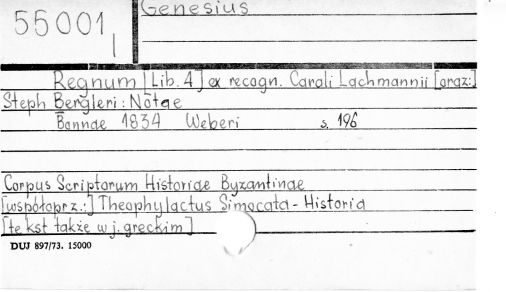 Genesius
55001
I
Regnum [Lib. 4] ex recogn. Caroli Lachmannii [oraz:]
Steph Bergleri: Nōtae
Bonnae 1834 Weberi s. 196
Corpus Scriptorum Historiae Byzantinae
[współoprz.:] Theophylactus Simocata - Historia
[tekst także w j. greckim]
DUJ 897/73. 15000